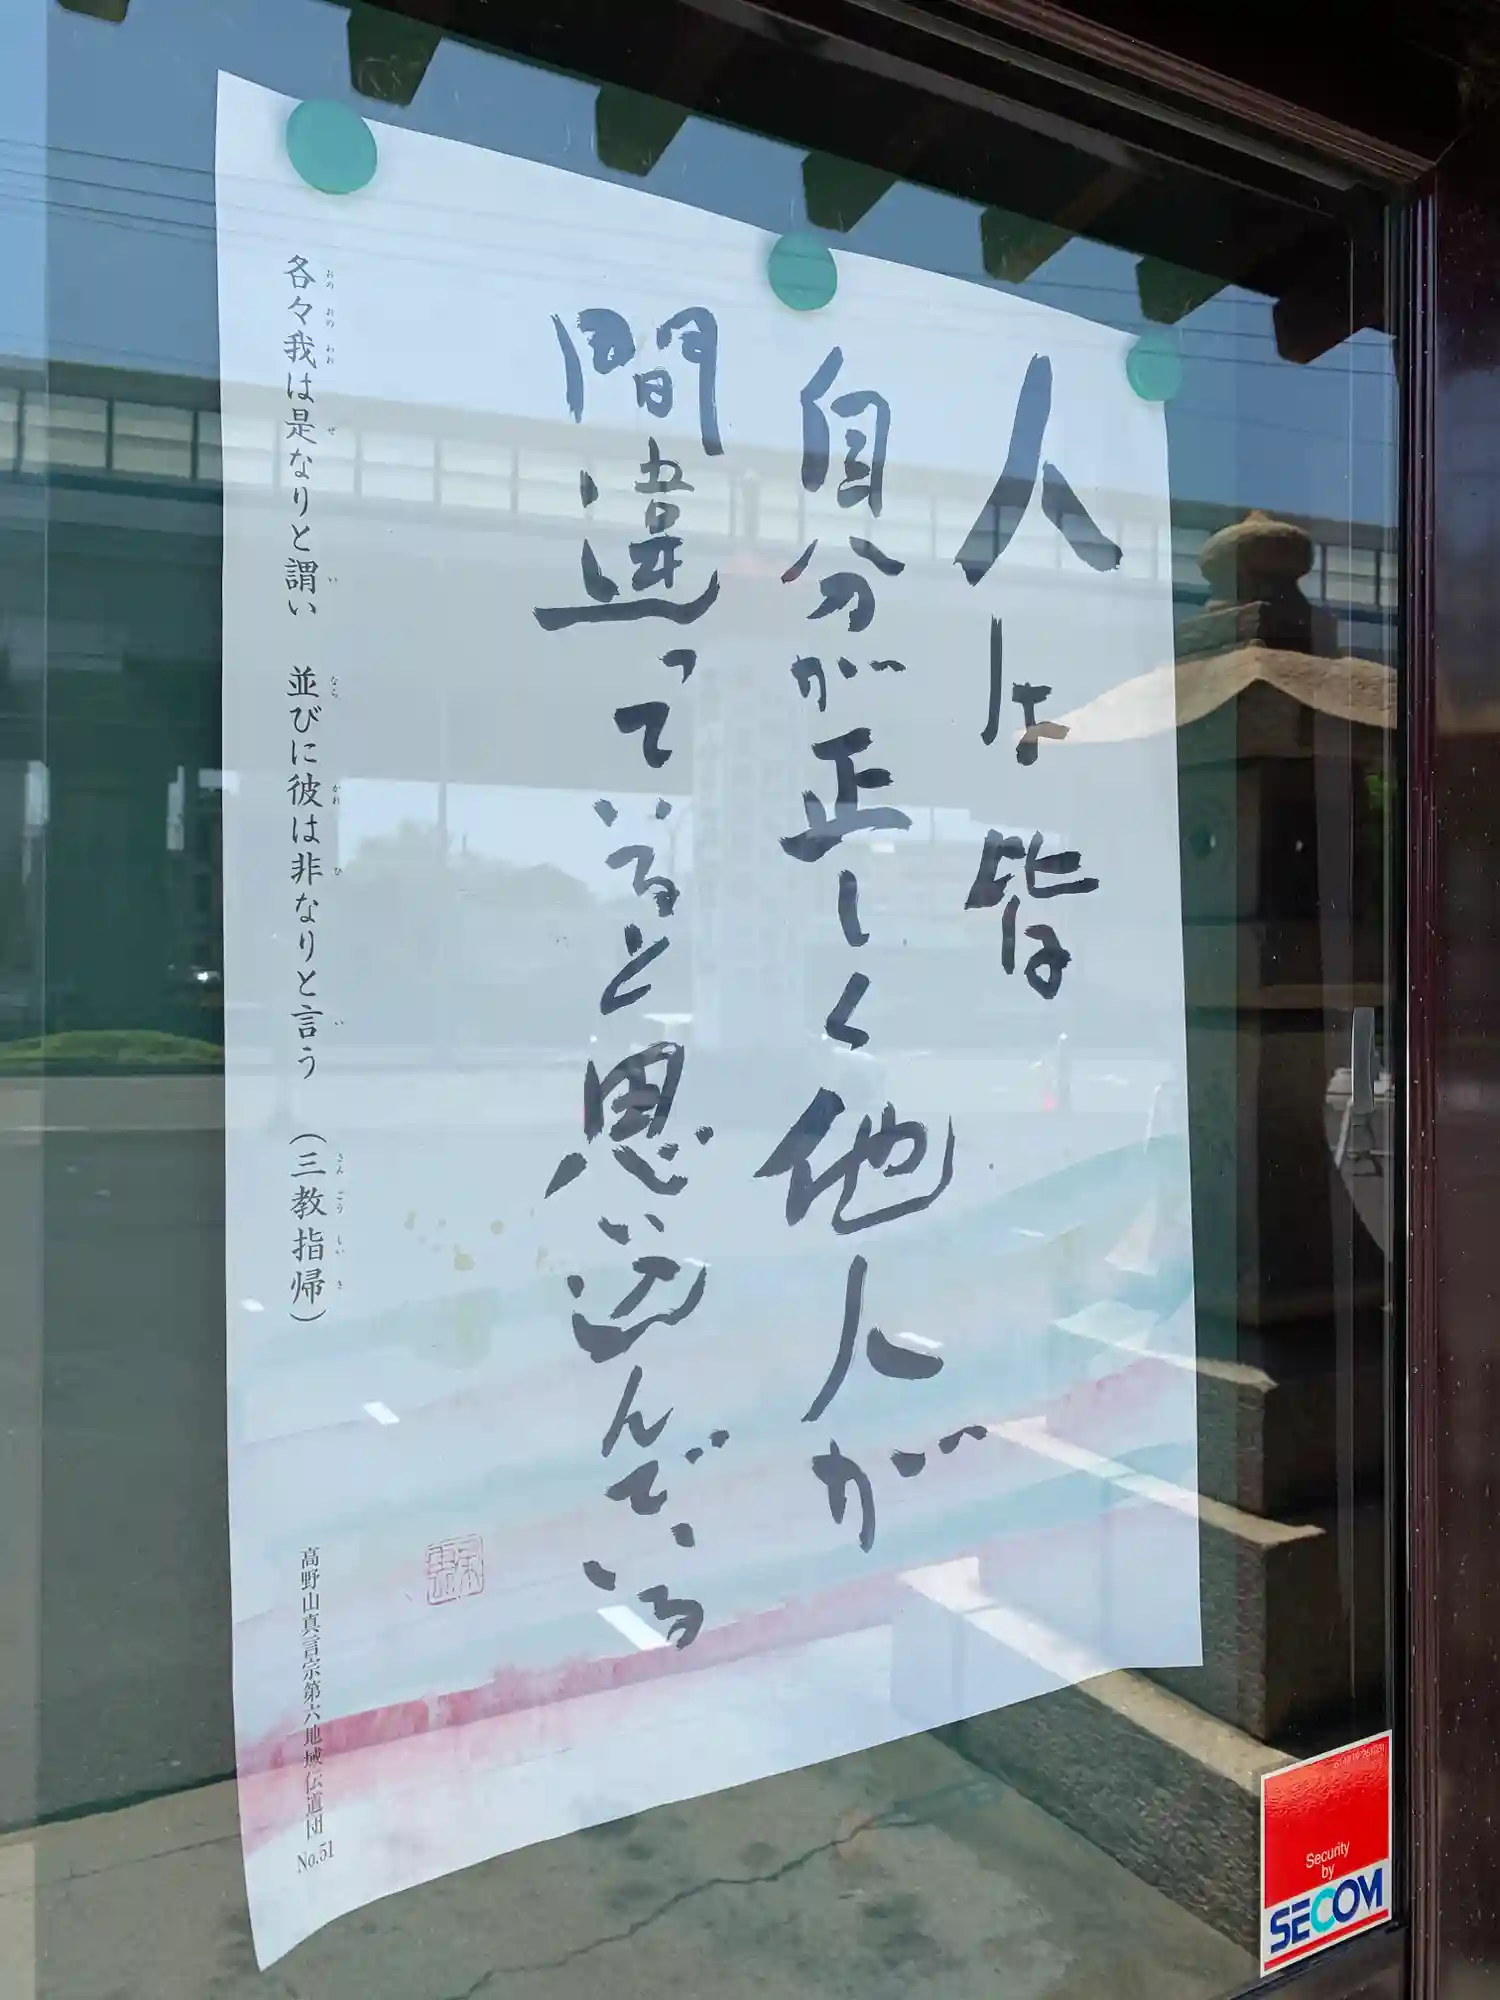 人は皆
自分が正しく他人が
間違っていると思い込んでいる
各々我は是なりと謂い　並びに彼は非なりと言う　（三教指帰）
高野山真言宗第六地域伝道団 No.51
Security
by
SECOM